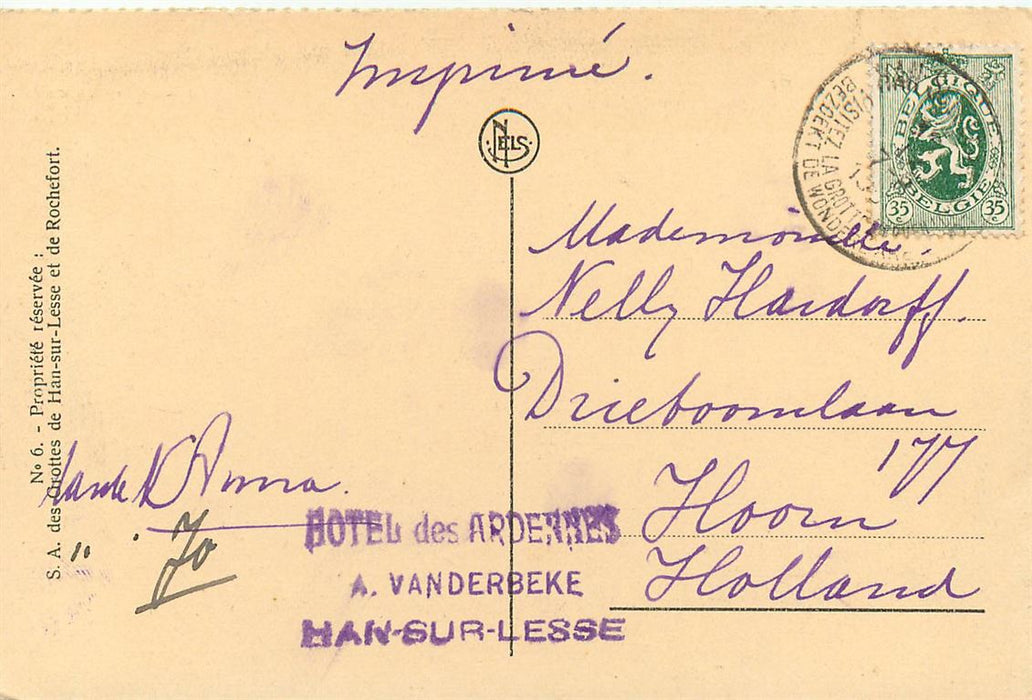 Imprimé.
NELS.
BELGIQUE
BELGIË
35 c 35 c
VISITEZ LA GROTTE
BEZOEKT DE WONDE
Mademoiselle
Nelly Hardorff.
Drieboomlaan
177
Hoorn
Holland
No 6. - Propriété réservée :
S. A. des Grottes de Han-sur-Lesse et de Rochefort.
Tante Anna.
" . Jo
HOTEL des ARDENNES
A. VANDERBEKE
HAN-SUR-LESSE